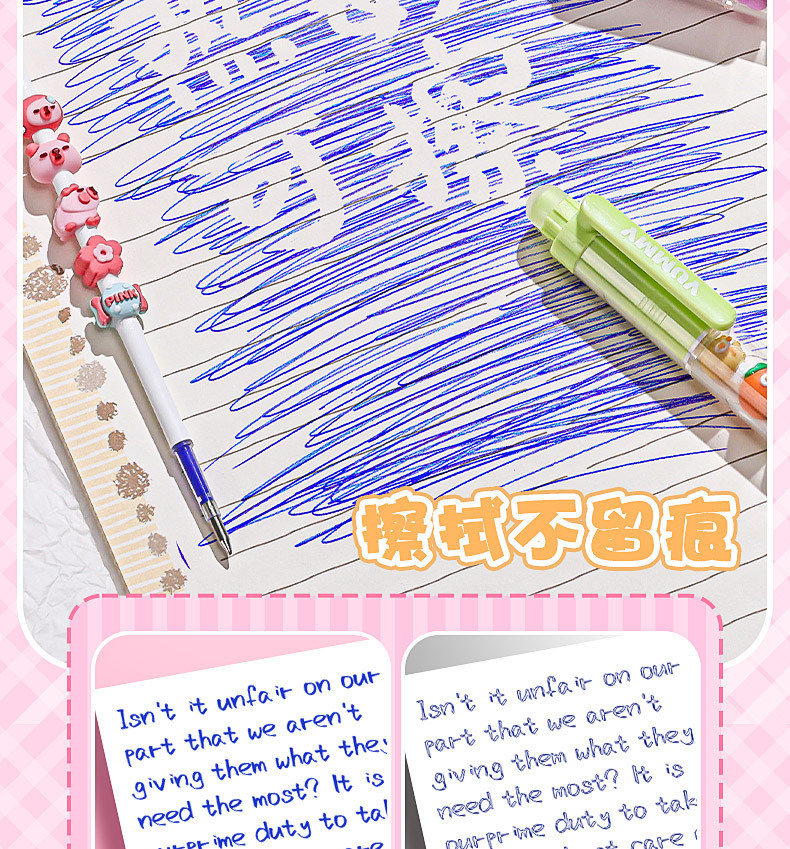 可擦
YUMMY
PINK
擦拭不留痕
Isn't it unfair on our
part that we aren't
giving them what they
need the most? It is
ourprime duty to tal
Isn't it unfair on our
part that we aren't
giving them what they
need the most? It is
ourprime duty to tak
care